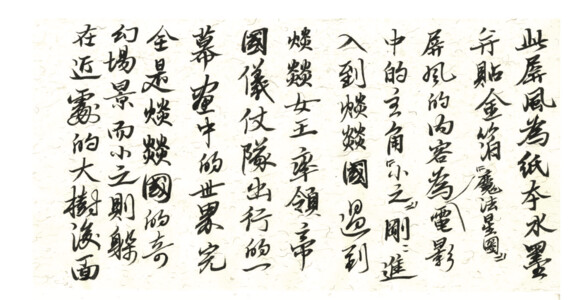 此屏風為紙本水墨
并貼金箔『魔法星國』
屏風的內容為電影
中的主角『小之』剛々進
入到焱燚國遇到
焱燚女王率領帝
國儀仗隊出行的一
幕畫中的世界完
全是焱燚國的奇
幻場景而小之則躲
在近處的大樹後面